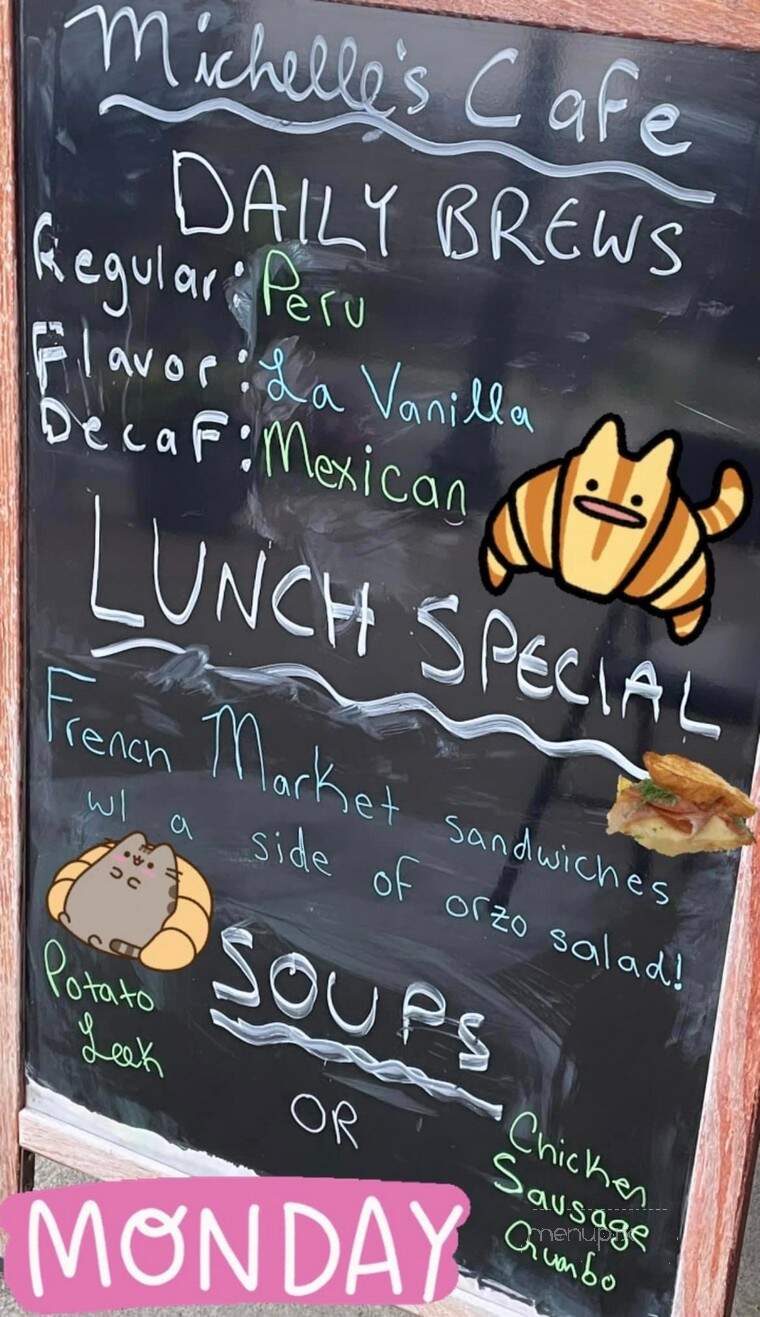 Michelle's Cafe
DAILY BREWS
Regular: Peru
Flavor: La Vanilla
Decaf: Mexican
LUNCH SPECIAL
French Market sandwiches
w/ a side of orzo salad!
SOUPS
Potato
Leek
OR
Chicken
Sausage
Gumbo
MONDAY